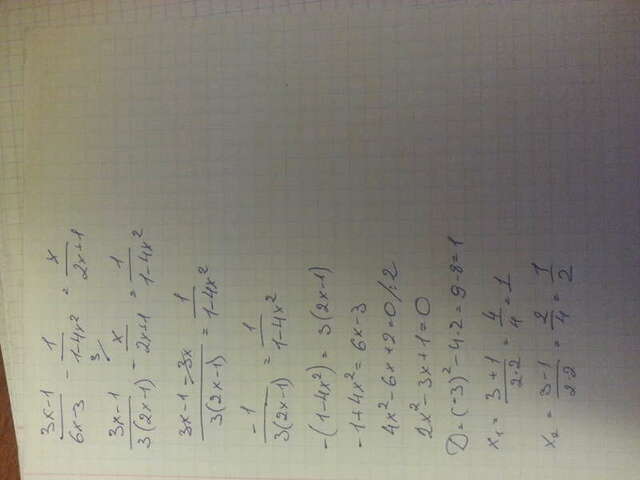 (3x-1)/(6x-3) - 1/(1-4x²) = x/(2x+1)
(3x-1)/(3(2x-1)) - x/(2x+1) ³⁄ = 1/(1-4x²)
(3x-1-3x)/(3(2x-1)) = 1/(1-4x²)
-1/(3(2x-1)) = 1/(1-4x²)
-(1-4x²) = 3(2x-1)
-1+4x² = 6x-3
4x²-6x+2=0/:2
2x²-3x+1=0
D=(-3)²-4·2=9-8=1
x₁ = (3+1)/(2·2) = 4/4 = 1
x₂ = (3-1)/(2·2) = 2/4 = 1/2